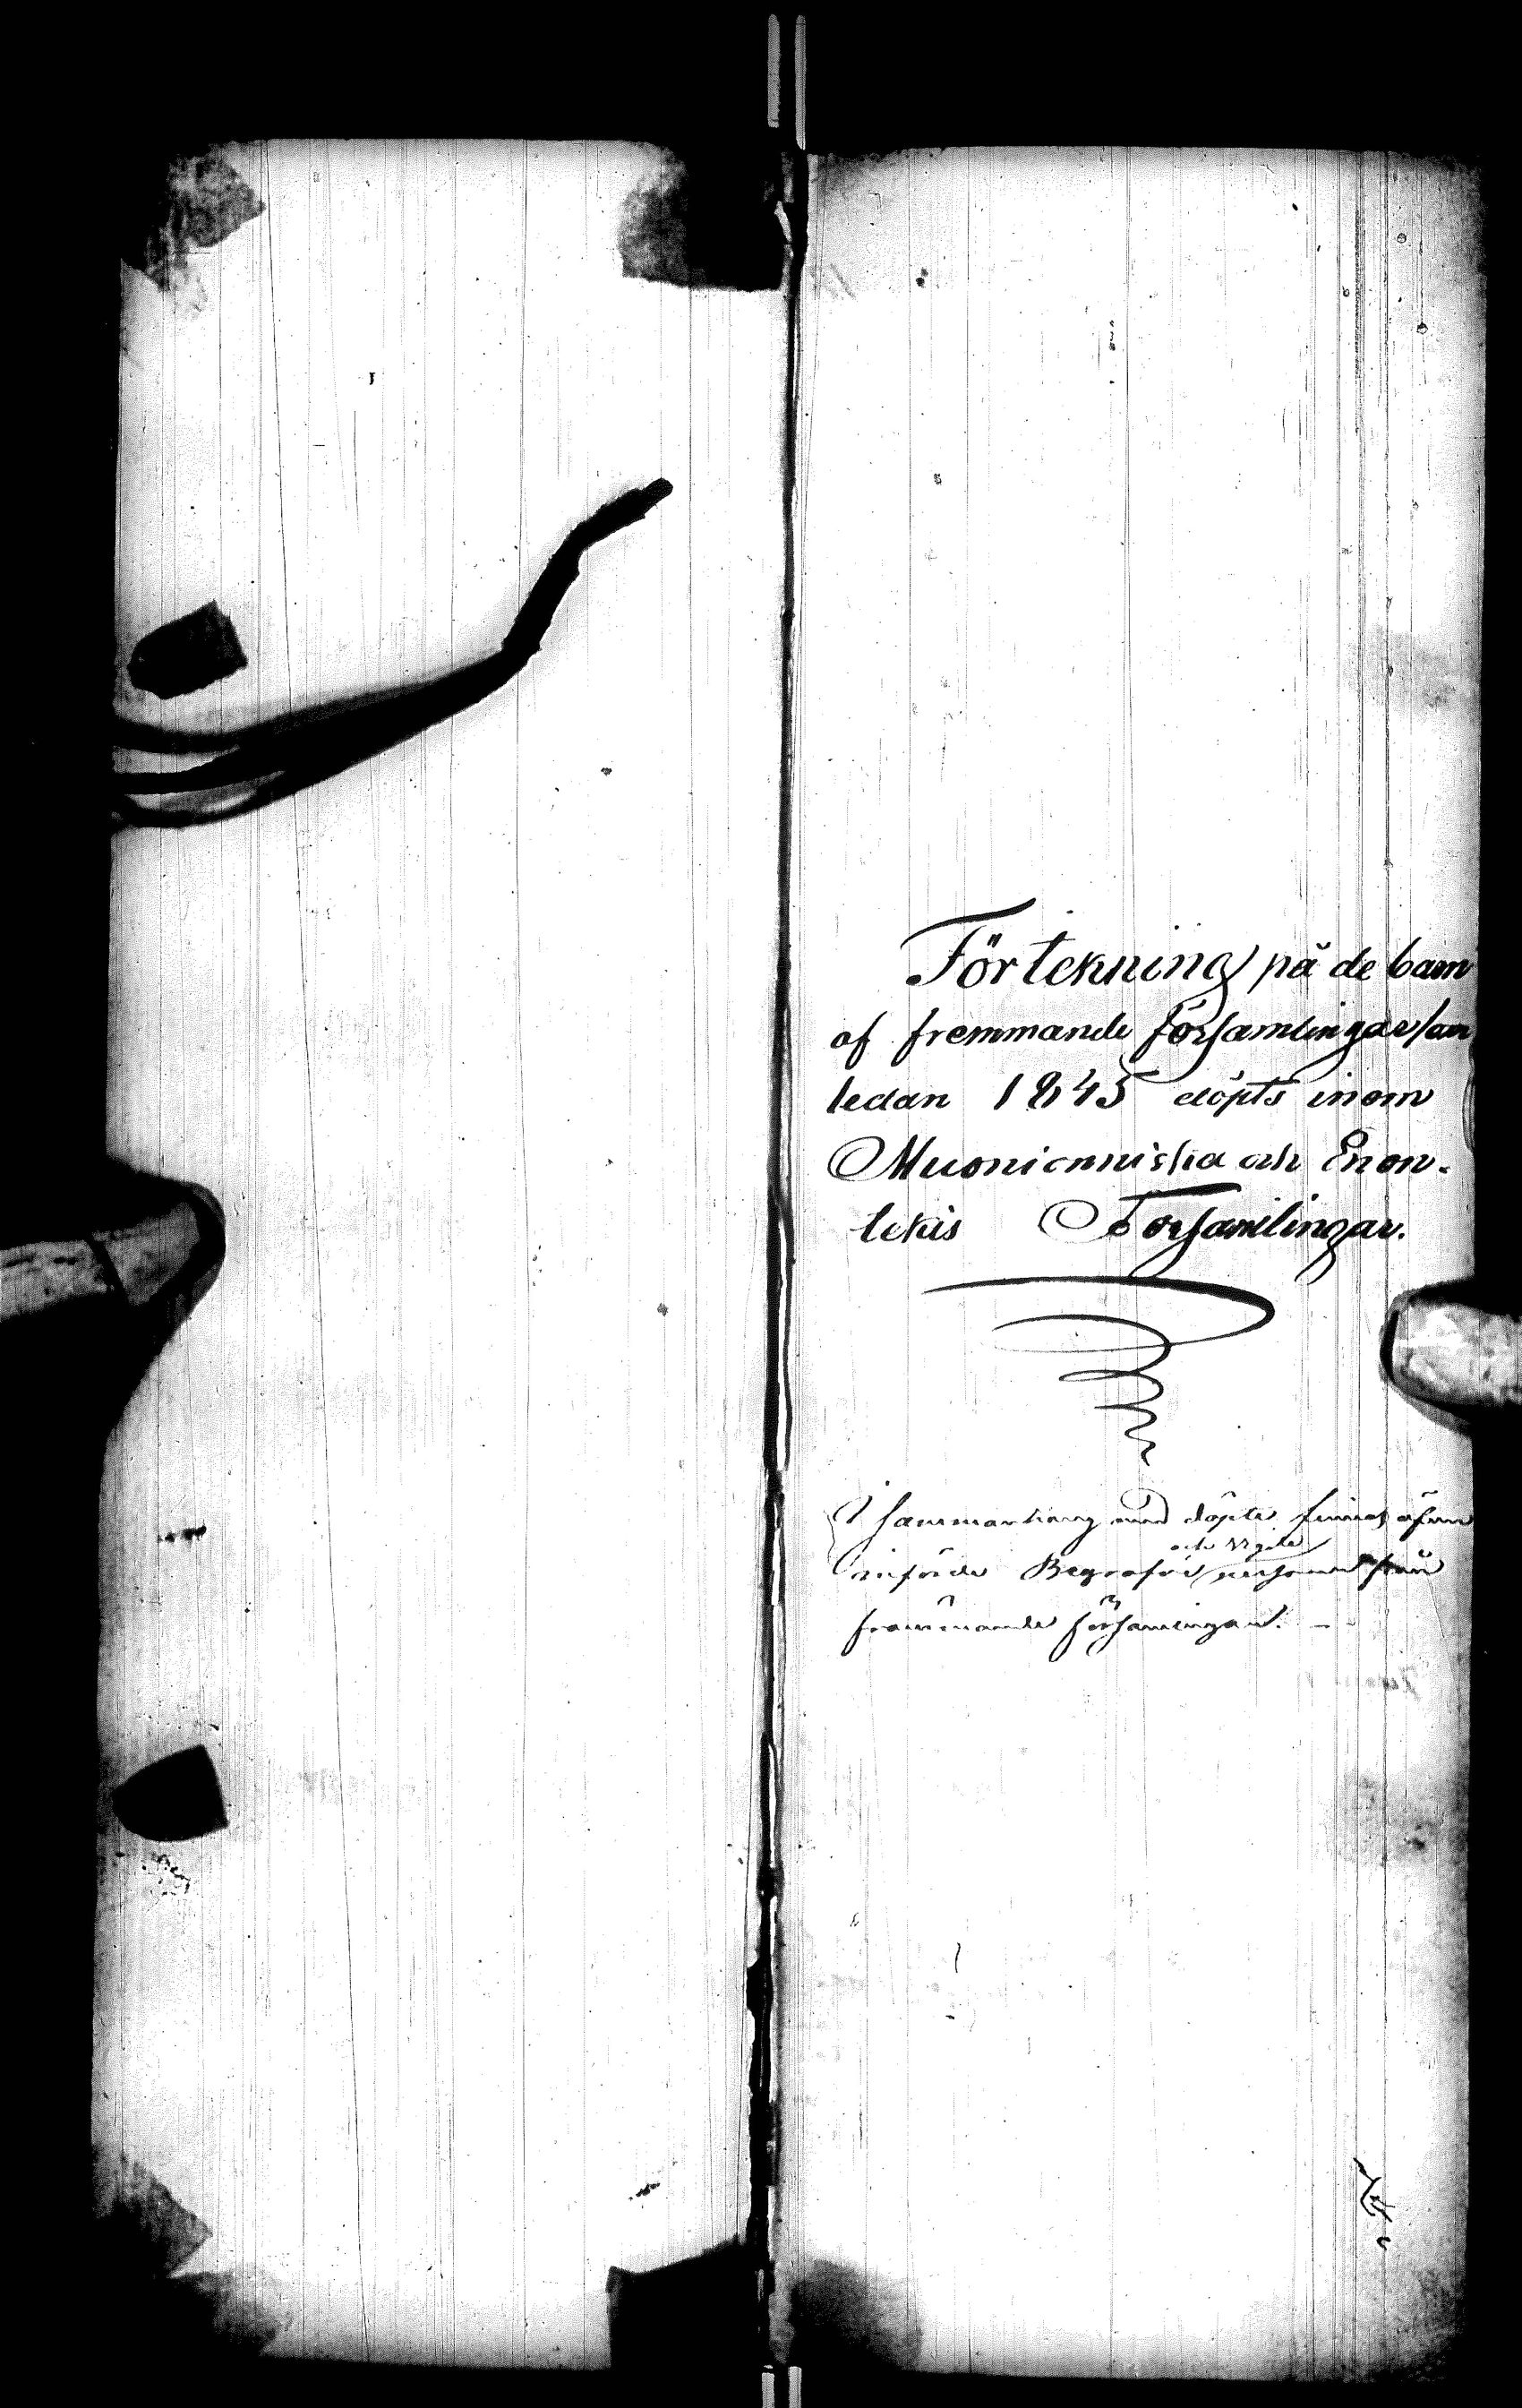 Förtekning på de barn
af fremmande församlingar som
sedan 1845 döpts inom
Muonionniska och Enon-
tekis Församlingar.
I sammanhang med döpte finnas äfven
och vigde
införde Begrafne personer från
främmande församlingar. —